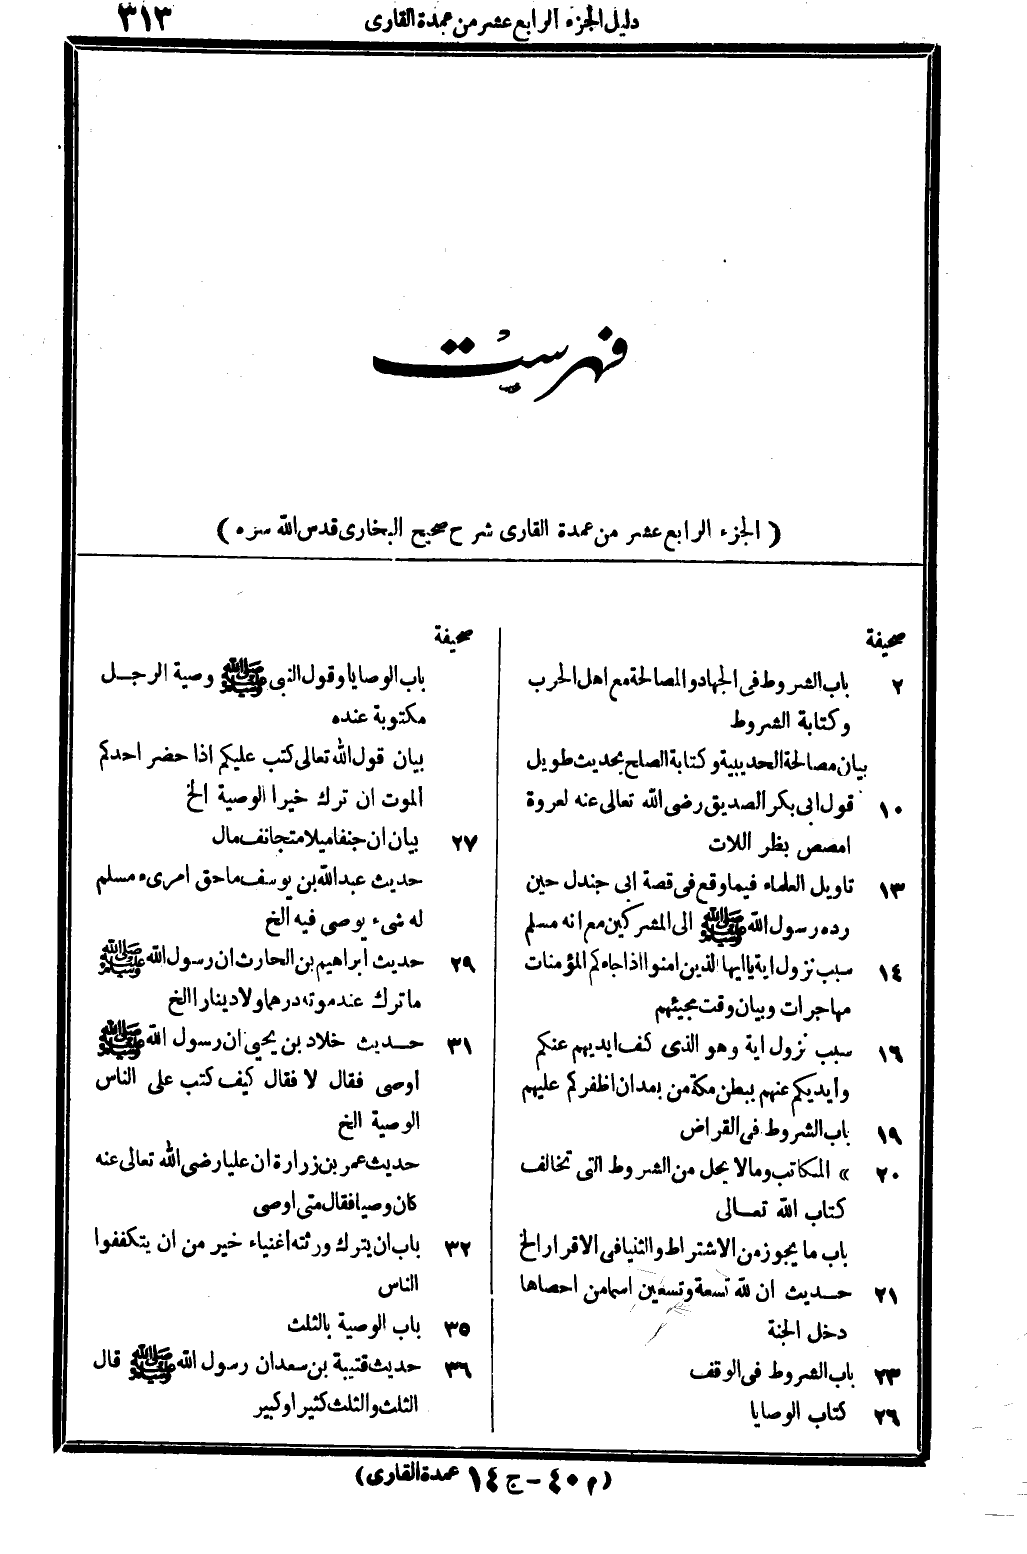 دليل الجزء الرابع عشر من عمدة القارى
٣١٣
فهرست
( الجزء الرابع عشر من عمدة القارى شرح صحيح البخارى قدس الله سره )
صحيفة
٢ باب الشروط فى الجهاد والمصالحة مع اهل الحرب
وكتابة الشروط
بيان مصالحة الحديبية وكتابة الصلح بحديث طويل
١٠ قول ابى بكر الصديق رضى الله تعالى عنه لعروة
امصص بظر اللات
١٣ تاويل العلماء فيما وقع فى قصة ابى جندل حين
رده رسول الله ﷺ الى المشركين مع انه مسلم
١٤ سبب نزول اية ياايها الذين امنوا اذا جاءكم المؤمنات
مهاجرات وبيان وقت مجيئهم
١٦ سبب نزول اية وهو الذى كف ايديهم عنكم
وأيديكم عنهم ببطن مكة من بعد ان اظفركم عليهم
١٩ باب الشروط فى القراض
٢٠ » المكاتب ومالا يحل من الشروط التى تخالف
كتاب الله تعالى
باب ما يجوز من الاشتراط والثنيا فى الاقرار الخ
٢١ حديث ان لله تسعة وتسعين اسما من احصاها
دخل الجنة
٢٣ باب الشروط فى الوقف
٢٦ كتاب الوصايا
صحيفة
باب الوصايا وقول النبى ﷺ وصية الرجل
مكتوبة عنده
بيان قول الله تعالى كتب عليكم اذا حضر احدكم
الموت ان ترك خيرا الوصية الخ
٢٧ بيان ان جنفا ميلا متجانف مال
حديث عبدالله بن يوسف ماحق امرىء مسلم
له شىء يوصى فيه الخ
٢٩ حديث أبراهيم بن الحارث ان رسول الله ﷺ
ماترك عند موته درهما ولا دينارا الخ
٣١ حديث خلاد بن يحيى ان رسول الله ﷺ
اوصى فقال لا فقال كيف كتب على الناس
الوصية الخ
حديث عمر بن زرارة ان عليا رضى الله تعالى عنه
كان وصيا فقال متى اوصى
٣٢ باب ان يترك ورثته أغنياء خير من ان يتكففوا
الناس
٣٥ باب الوصية بالثلث
٣٦ حديث قتيبة بن سعد ان رسول الله ﷺ قال
الثلث والثلث كثير او كبير
(م ٤٠ - ج ١٤ عمدة القارى)